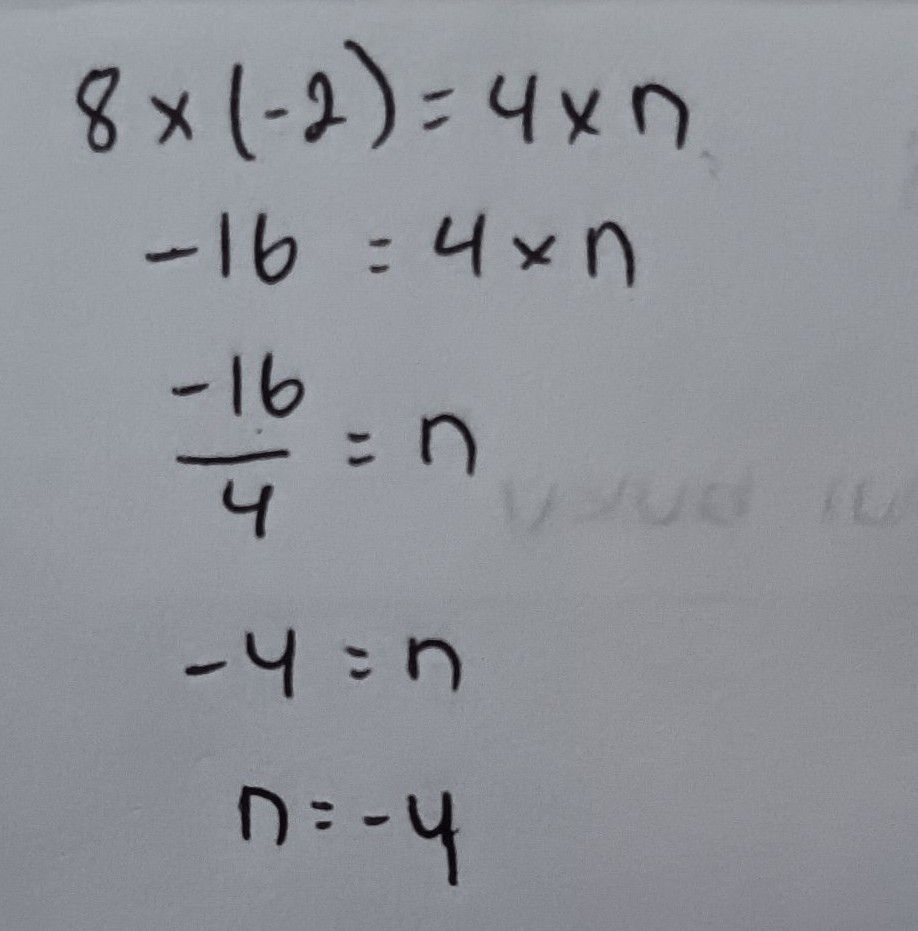 8 × (-2) = 4 × n
-16 = 4 × n
-16
4
= n
-4 = n
n = -4